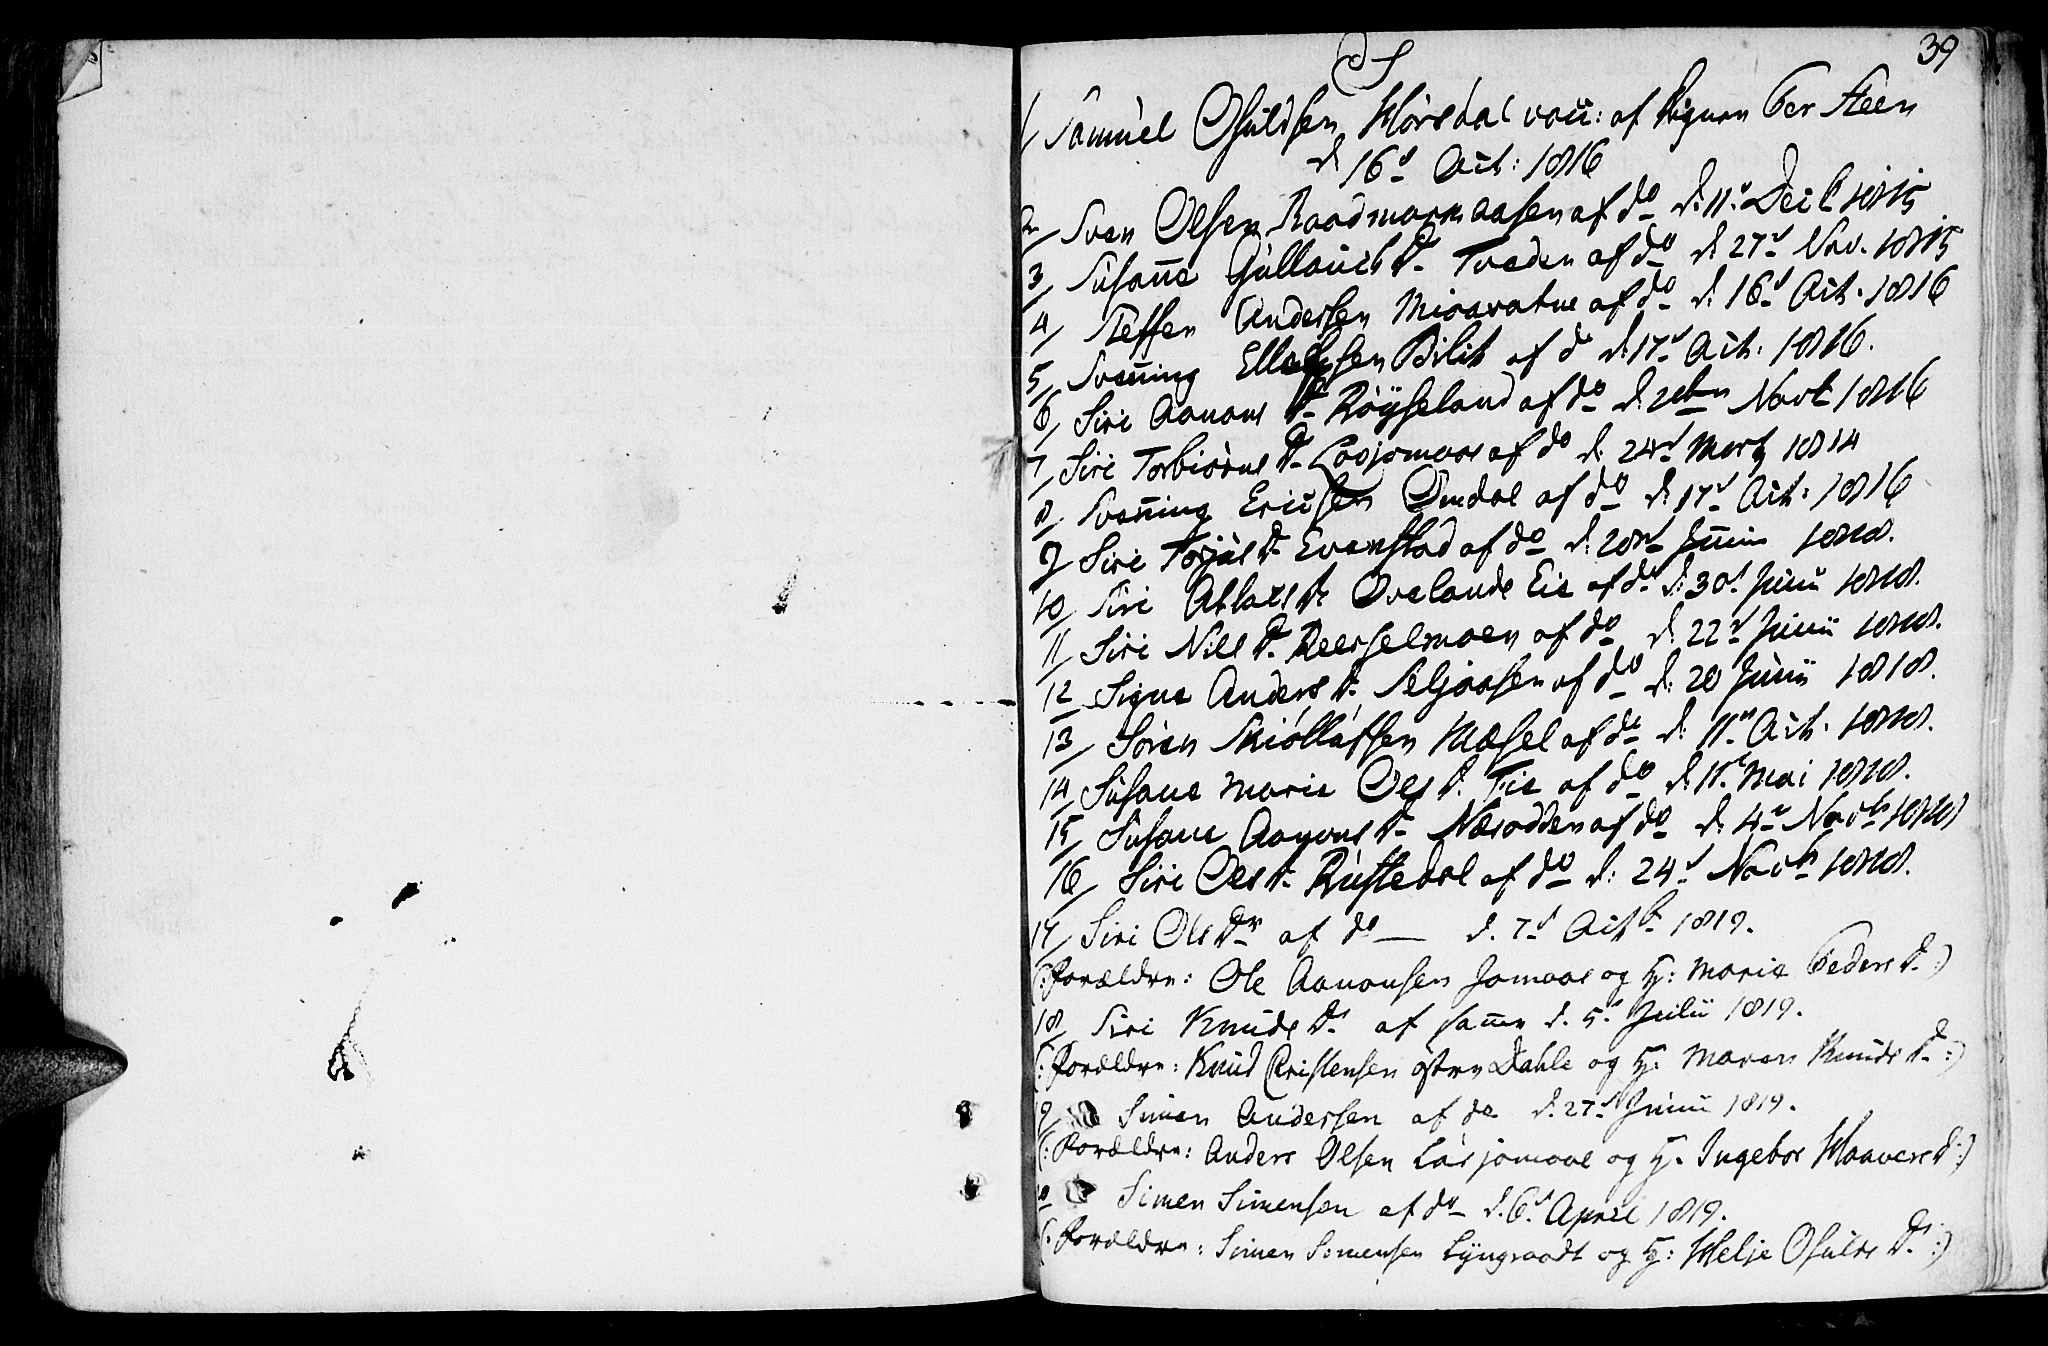 39
S
1/ Samuel Osuldsen Hørsdal vacc: af Signor Per Steen
d 16d Oct: 1816
2/ Sven Olsen Raadmoenaasen af do d: 11t Decb 1815
3/ Susanne Gullaues Dr Tveden af do d 27d Nov. 1815
4/ Steffen Andersen Mioavatne af do d: 16d Oct. 1816
5/ Svenning Ellefsen Bilit af do d: 17d Oct: 1816.
6/ Siri Aanons Dr Røyseland af do d: 2den Novb 1816
7/ Siri Torbiørns Dr Lasjomaas af do d: 24d Marty 1814
8/ Svenning Ericksen Omdal af do d: 17d Oct: 1816
9/ Siri Torjus Dr Evenstad af do d: 28d Junii 1818.
10/ Siri Atlaks Dr Ovelands Eie af do d: 30d Junii 1818.
11/ Siri Niels Dr Reerselmoen af do d: 22d Junii 1818.
12/ Signe Anders Dr Seljaasen af do d: 20 Junii 1818.
13/ Søren Skiøllufsen Mæsel af do d: 11t Oct. 1818.
14/ Susane Marie Oles Dr Fie af do d. 11t Mai 1818.
15/ Susane Aanons Dr Næsodden af do d: 4de Novb 1818
16/ Siri Oles Dr Rustedal af do d: 24d Novb 1818.
17/ Siri Ols Dr af do — d. 7d Octbr 1819.
(: Forældre: Ole Aanonsen Jomaas og H: Marie Peders Dr :)
18/ Siri Knuds Dr af samme d. 5d Julii 1819.
(: Forældre: Knud Cristensen østre Dahle og H: Maren Knuds Dr :)
19/ Simen Andersen af do d. 27d Junii 1819.
(: Forældre: Anders Olsen Lasjomaae og H. Ingebor Haavers Dr :)
20 Simen Simensen af do d. 6d April 1819.
(: Forældre: Simen Simensen Lyngraadt og H: Helje Osulds Dr :)